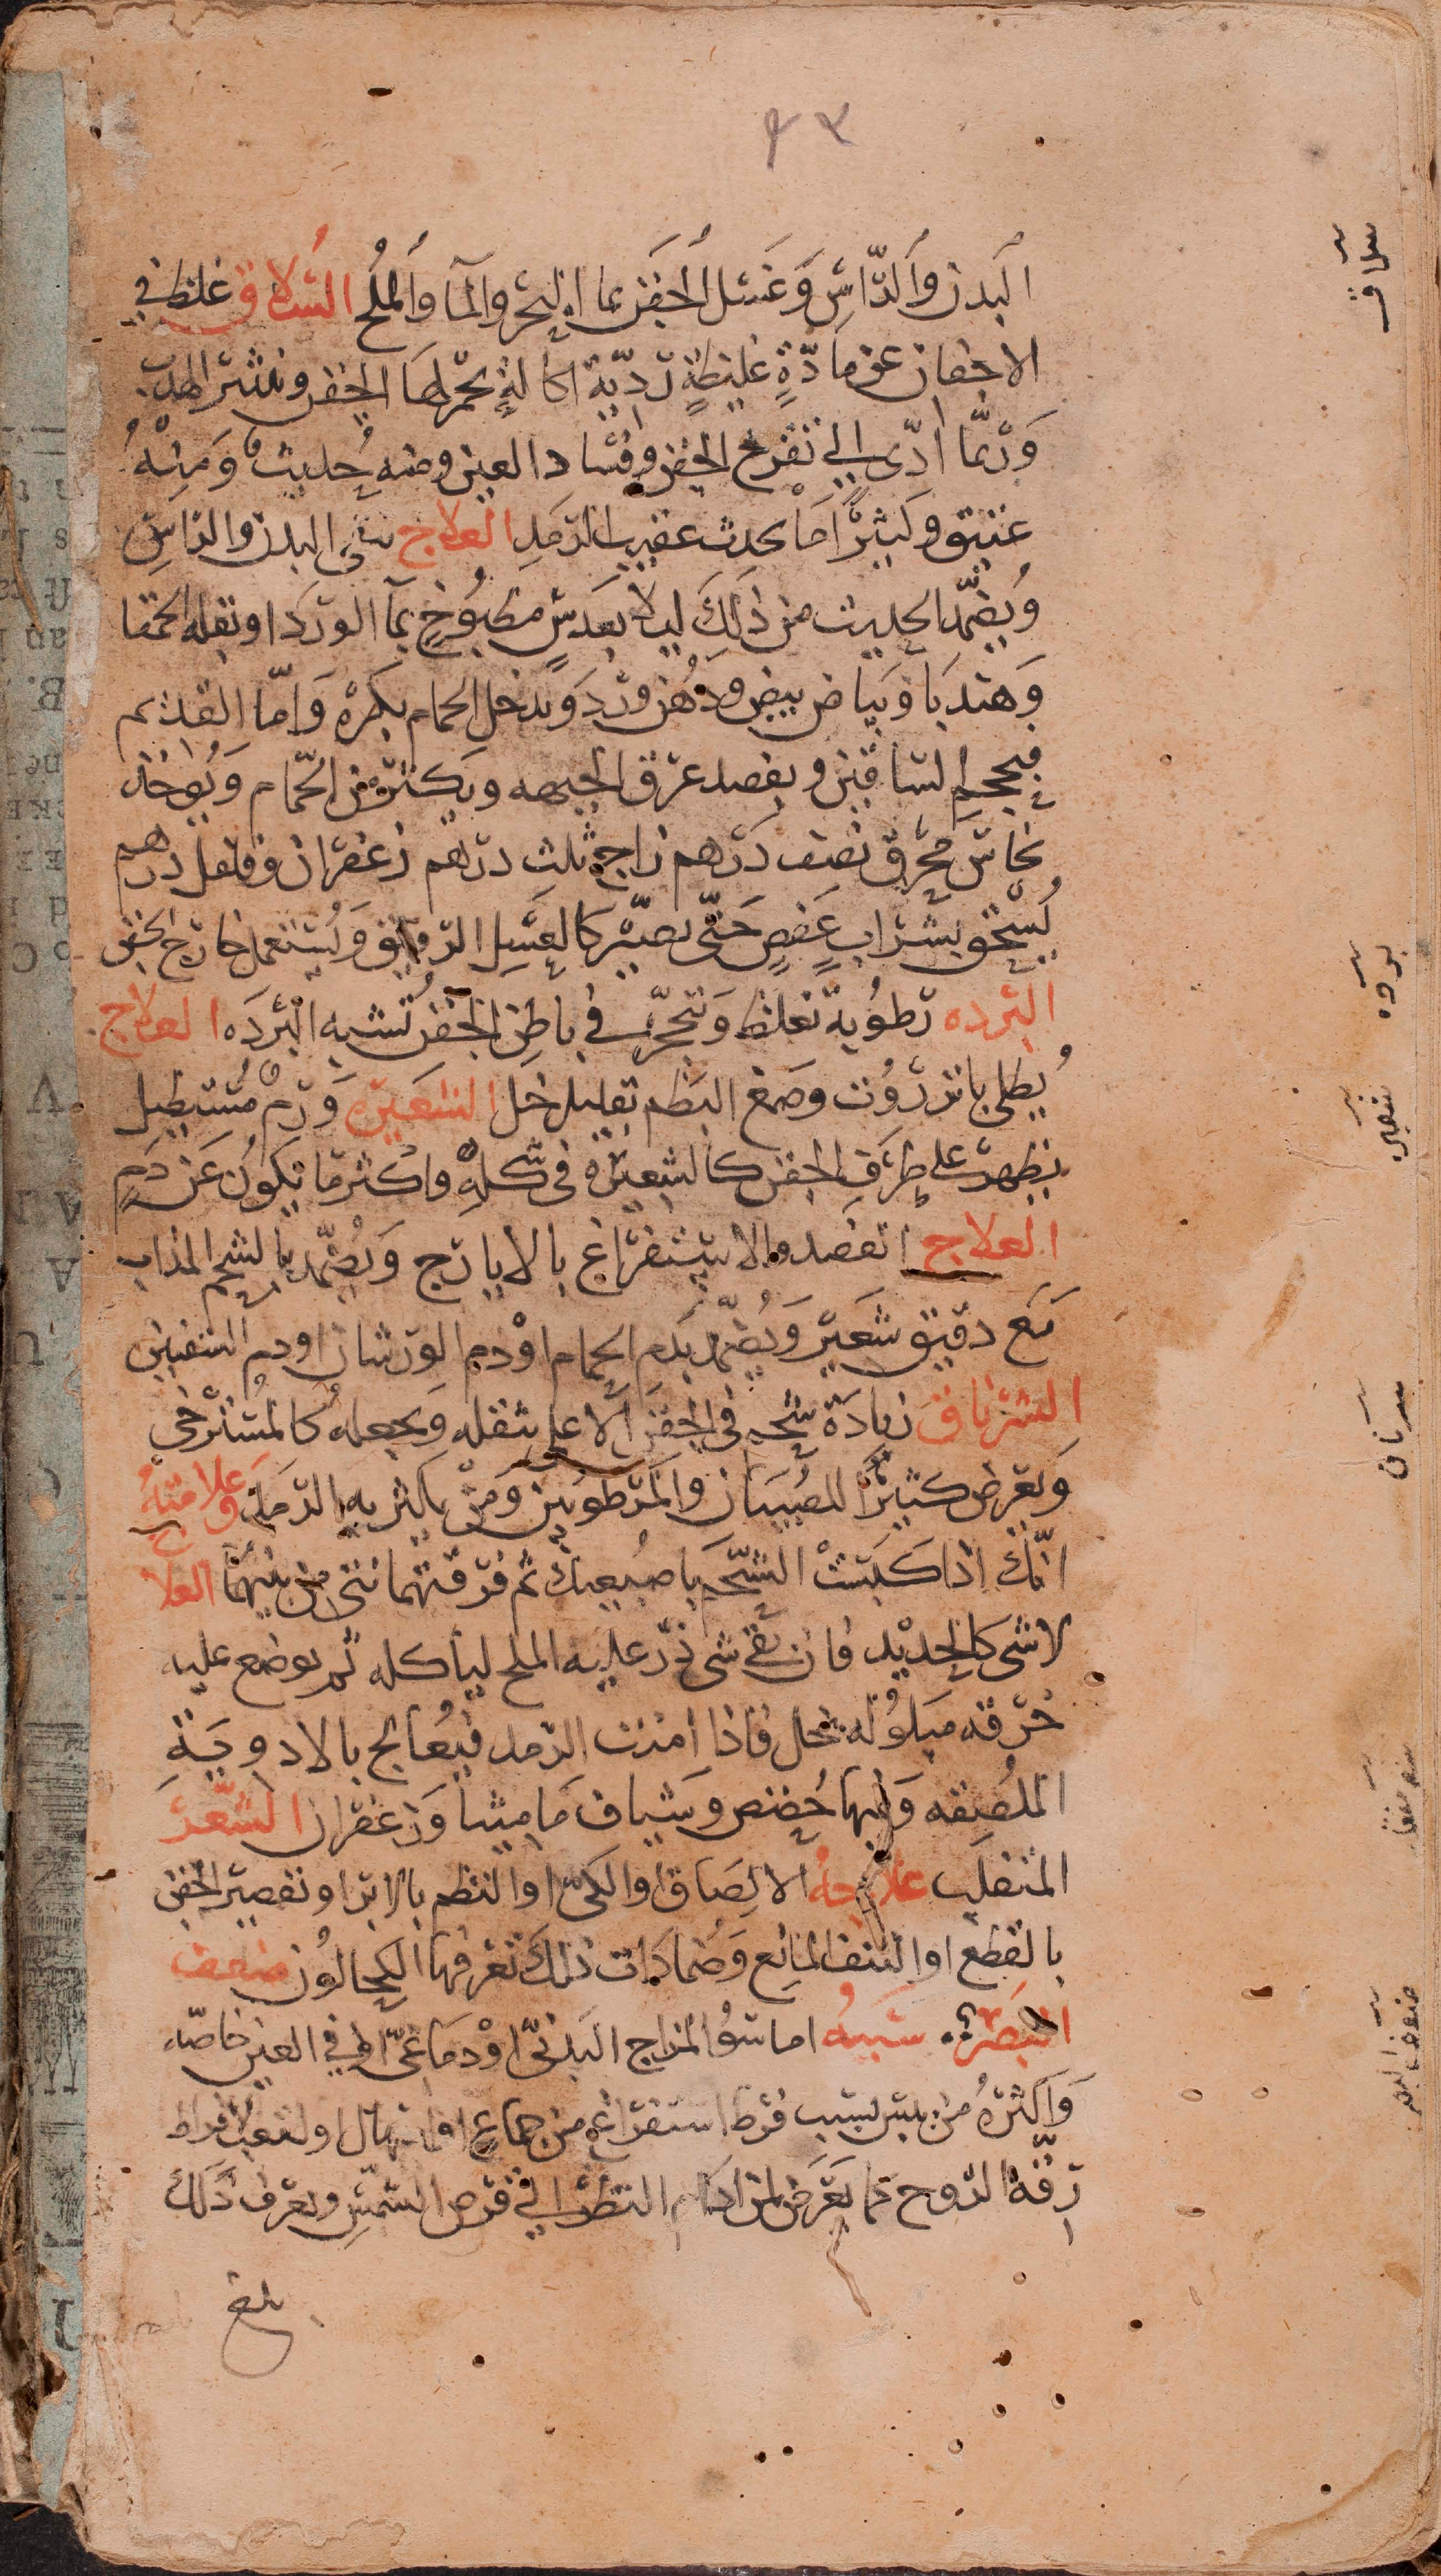 ٩٢
البدن والراس وغسل الجفن بما البحر والما والملح السلاق غلظ في
الاجفان عن مادة غليظة ردية اكالة يحمر لها الجفن وينتثر الهدب
وربما ادى الى تقرح الجفن وفساد العين ومنه حديث ومنه
عتيق وكثيرا ما يحدث عقيب الرمد العلاج ينقى البدن والراس
ويضمد الحديث من ذلك ليلا بعدس مطبوخ بما الورد او بقلة الحمقا
وهندبا وبياض بيض ودهن ورد ويدخل الحمام بكره واما القديم
فيحجم الساقين ويفصد عرق الجبهه ويكثر من الحمام ويوخذ
نحاس محرق نصف درهم زاج ثلث درهم زعفران وفلفل درهم
يسحق بشراب عفص حتى يصير كالعسل الرقيق ويستعمل خارج الجفن
البرده رطوبة تغلظ وتتحجر في باطن الجفن تشبه البرده العلاج
يطلى بانزروت وصمغ البطم بقليل خل الشعيره ورم مستطيل
يظهر على طرف الجفن كالشعيرة فى شكله واكثر ما يكون عن دم
العلاج الفصد والاستفراغ بالايارج ويضمد بالشحم المذاب
مع دقيق شعير ويضمد بدم الحمام او دم الورشان او دم الشفنين
الشرناق زيادة شحم في الجفن الاعلى يثقله ويجعله كالمسترخي
ويعرض كثيرا للصبيان والمرطوبين ومن يكثر به الرمد وعلامته
انك اذا كبست الشحم باصبعيك ثم فرقتهما نتى من بينهما العلاج
لا شى كالحديد فان بقى شى ذر عليه الملح لياكله ثم يوضع عليه
خرقه مبلوله بخل فاذا امنت الرمد فيعالج بالادوية
الملصقه وفيها حضض وشياف ماميثا وزعفران الشعر
المنقلب علاجه الالصاق او الكى او النظم بالابر او تقصير الجفن
بالقطع او النتف المانع وضمادات ذلك تعرفها الكحالون ضعف
البصر سببه اما سوء المزاج البدنى او دماغى او في العين خاصه
واكثره من يبس بسبب فرط استفراغ من جماع او اسهال او لتعب او افراط
رقة الروح كما يعرض لمن ادام النظر الى قرص الشمس ويعرف ذلك
بلغ
سلاق
برده
شعيره
شرناق
شعر منقلب
ضعف البصر